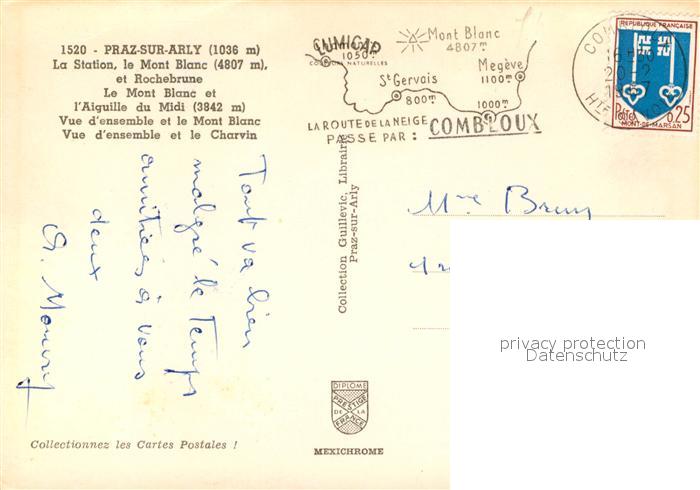 1520 - PRAZ-SUR-ARLY (1036 m)
La Station, le Mont Blanc (4807 m),
et Rochebrune
Le Mont Blanc et
l'Aiguille du Midi (3842 m)
Vue d'ensemble et le Mont Blanc
Vue d'ensemble et le Charvin
LUMICAP
COULEURS NATURELLES
1050m
Mont Blanc
4807m
Megève
1100m
St Gervais
800m
1000m
LA ROUTE DE LA NEIGE
PASSE PAR : COMBLOUX
REPUBLIQUE FRANÇAISE
Postes
0,25
MONT-DE-MARSAN
Tout va bien
malgré le temps
amitiés à vous
deux
Collection Guillevic, Librairie
Praz-sur-Arly
Mme Brun
privacy protection
Datenschutz
DIPLOME
PRESTIGE
DE LA
FRANCE
MEXICHROME
Collectionnez les Cartes Postales !